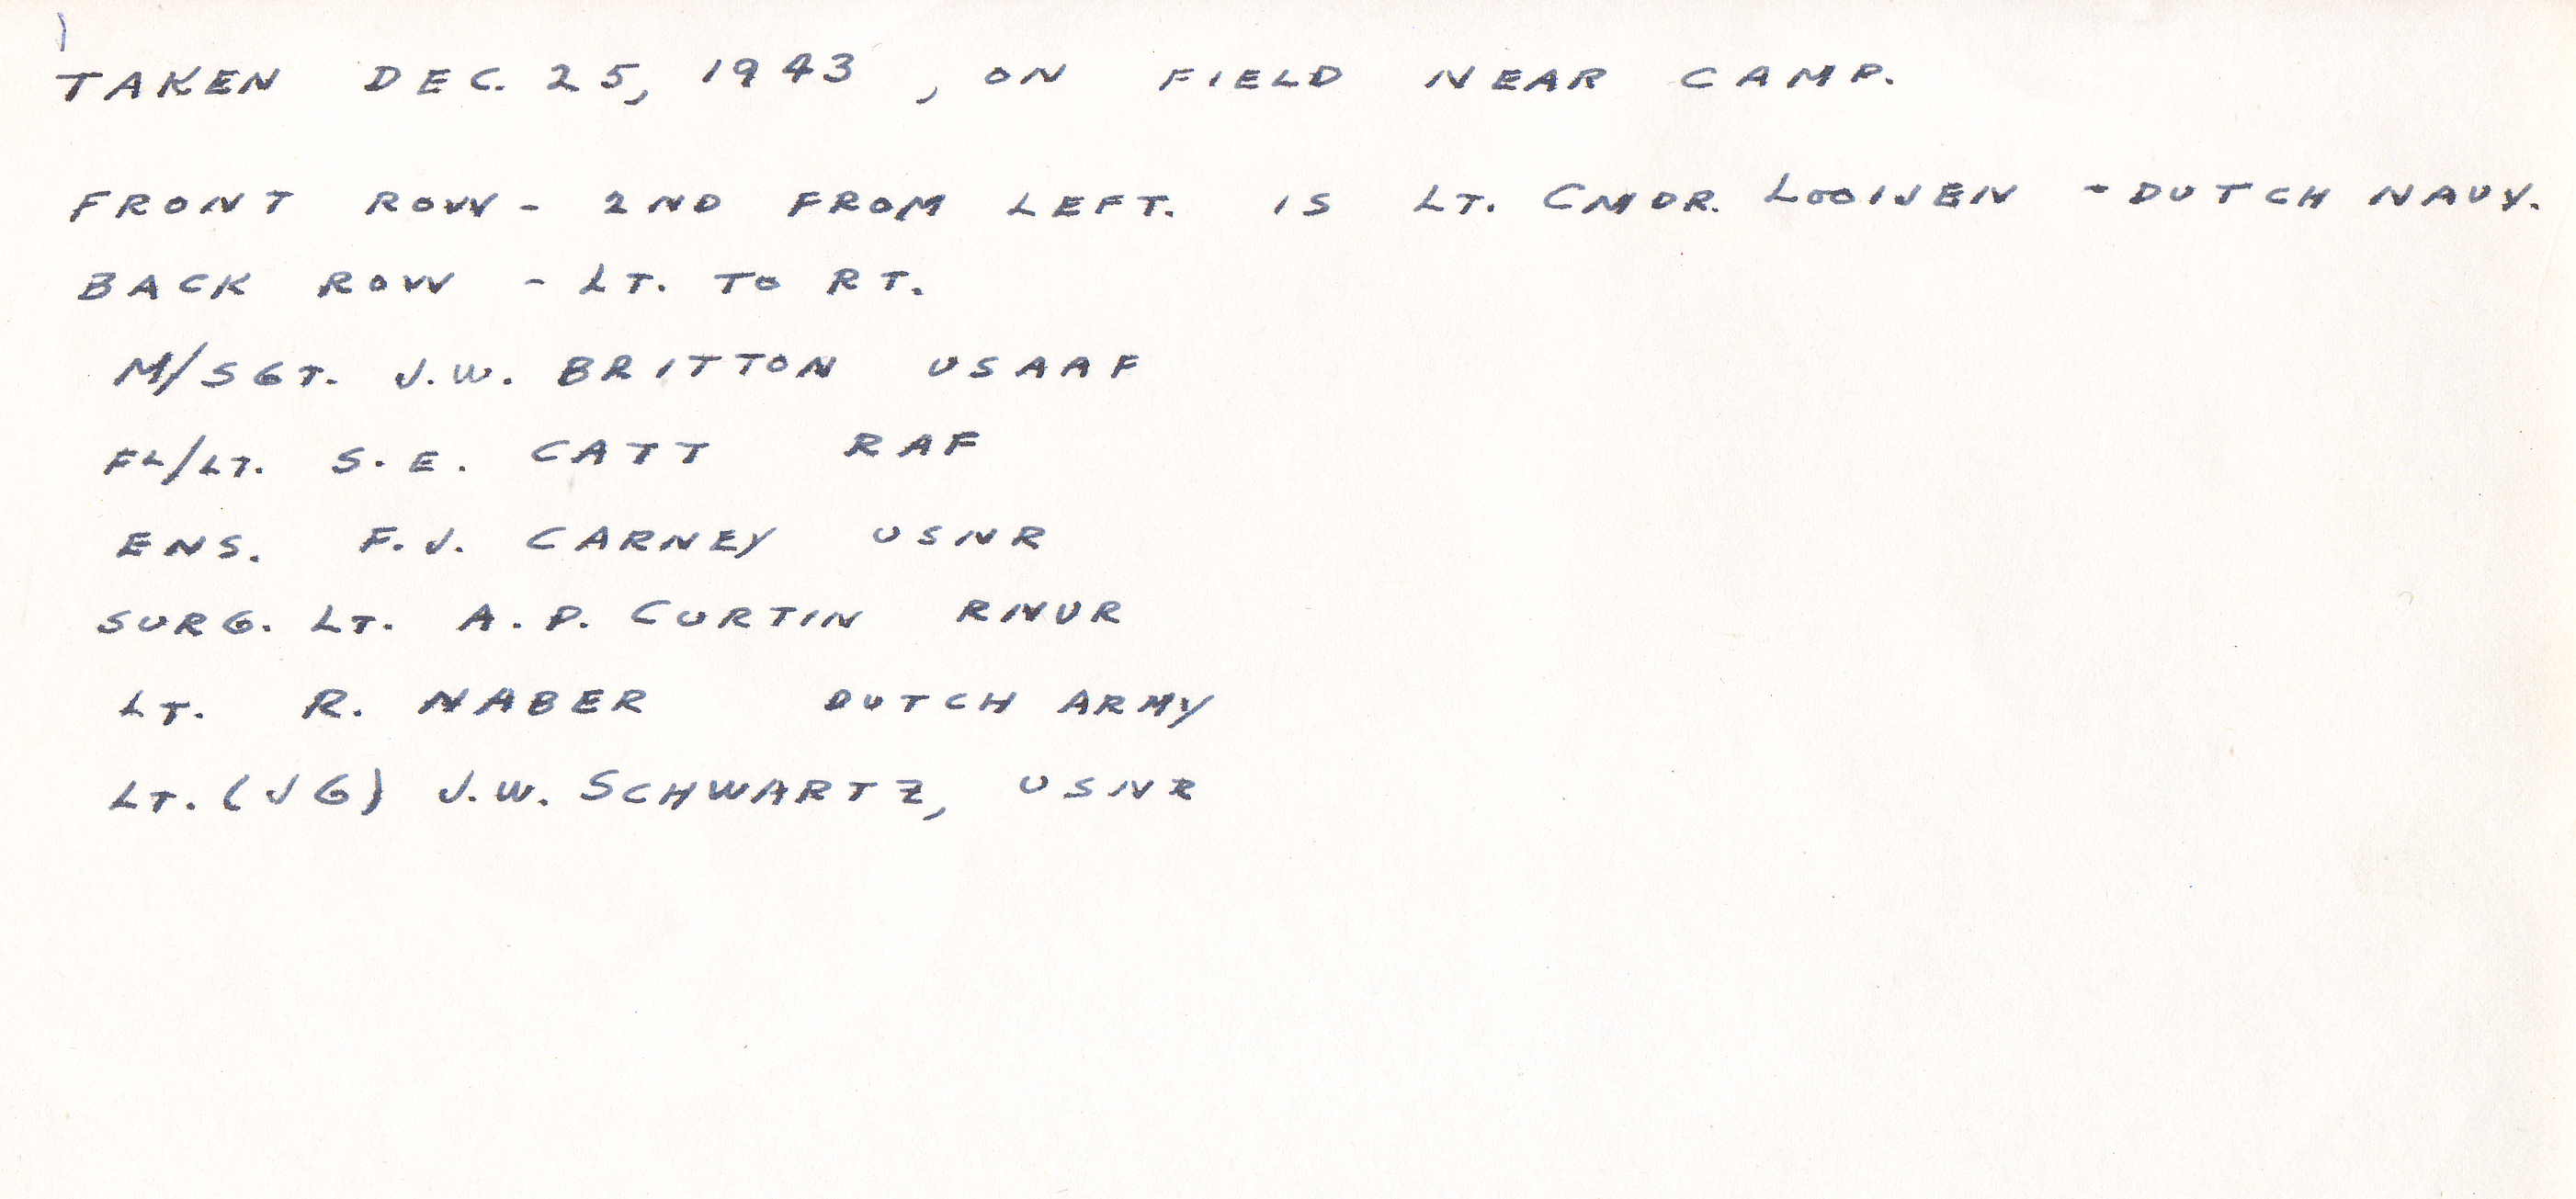 TAKEN DEC. 25, 1943, ON FIELD NEAR CAMP.
FRONT ROW - 2ND FROM LEFT. IS LT. CMDR. LOOIJEN - DUTCH NAVY.
BACK ROW - LT. TO RT.
M/SGT. J.W. BRITTON USAAF
FL/LT. S.E. CATT RAF
ENS. F.J. CARNEY USNR
SURG. LT. A.P. CURTIN RNVR
LT. R. NABER DUTCH ARMY
LT. (JG) J.W. SCHWARTZ, USNR